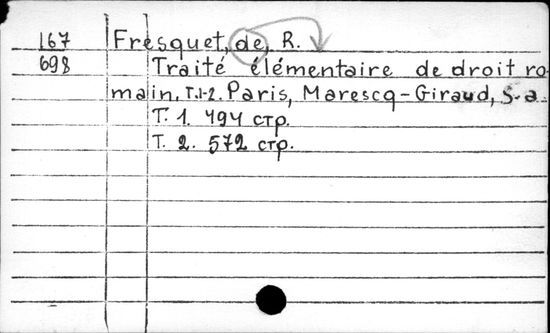 167 Fresquet, de, R.
698 Traité élémentaire de droit ro-
main, T.1-2. Paris, Marescq-Giraud, S.a.
T. 1. 494 стр.
T. 2. 572 стр.